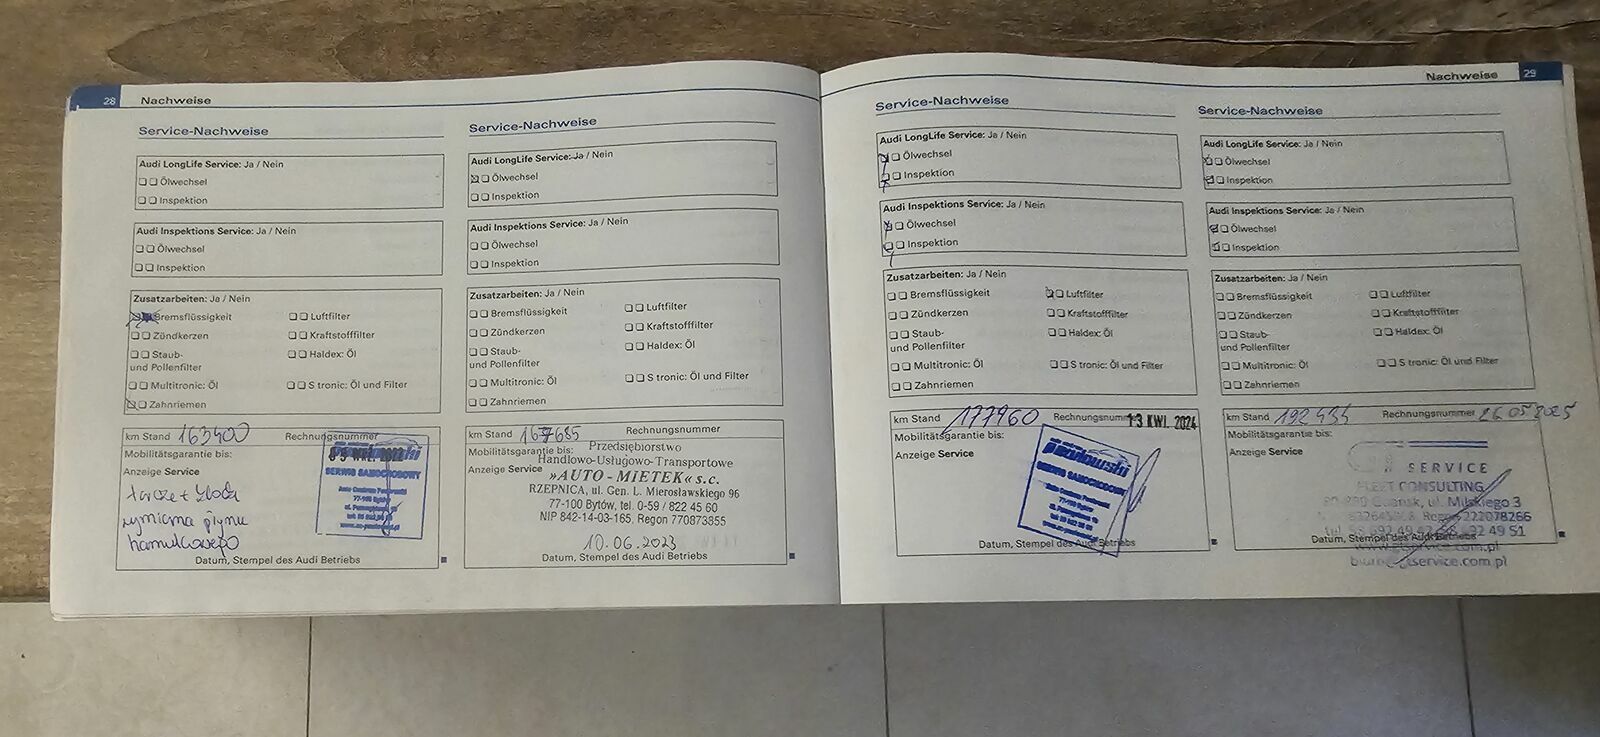 28 Nachweise
Service-Nachweise
Audi LongLife Service: Ja / Nein
Ölwechsel
Inspektion
Audi Inspektions Service: Ja / Nein
Ölwechsel
Inspektion
Zusatzarbeiten: Ja / Nein
Bremsflüssigkeit Luftfilter
Zündkerzen Kraftstofffilter
Staub- Haldex: Öl
und Pollenfilter
Multitronic: Öl S tronic: Öl und Filter
Zahnriemen
km Stand 163400 Rechnungsnummer
Mobilitätsgarantie bis:
Anzeige Service
SERWIS SAMOCHODOWY
77-100 Bytów
tarcze + klocki
wymiana płynu
hamulcowego
Datum, Stempel des Audi Betriebs
Service-Nachweise
Audi LongLife Service: Ja / Nein
Ölwechsel
Inspektion
Audi Inspektions Service: Ja / Nein
Ölwechsel
Inspektion
Zusatzarbeiten: Ja / Nein
Bremsflüssigkeit Luftfilter
Zündkerzen Kraftstofffilter
Staub- Haldex: Öl
und Pollenfilter
Multitronic: Öl S tronic: Öl und Filter
Zahnriemen
km Stand 167685 Rechnungsnummer
Mobilitätsgarantie bis:
Anzeige Service
Przedsiębiorstwo
Handlowo-Usługowo-Transportowe
»AUTO - MIETEK« s.c.
RZEPNICA, ul. Gen. L. Mierosławskiego 96
77-100 Bytów, tel. 0-59 / 822 45 60
NIP 842-14-03-165, Regon 770873855
10.06.2023
Datum, Stempel des Audi Betriebs
Nachweise 29
Service-Nachweise
Audi LongLife Service: Ja / Nein
Ölwechsel
Inspektion
Audi Inspektions Service: Ja / Nein
Ölwechsel
Inspektion
Zusatzarbeiten: Ja / Nein
Bremsflüssigkeit Luftfilter
Zündkerzen Kraftstofffilter
Staub- Haldex: Öl
und Pollenfilter
Multitronic: Öl S tronic: Öl und Filter
Zahnriemen
km Stand 177960 Rechnungsnummer 13 KWI. 2024
Mobilitätsgarantie bis:
Anzeige Service
SERWIS SAMOCHODOWY
77-100 Bytów
Datum, Stempel des Audi Betriebs
Service-Nachweise
Audi LongLife Service: Ja / Nein
Ölwechsel
Inspektion
Audi Inspektions Service: Ja / Nein
Ölwechsel
Inspektion
Zusatzarbeiten: Ja / Nein
Bremsflüssigkeit Luftfilter
Zündkerzen Kraftstofffilter
Staub- Haldex: Öl
und Pollenfilter
Multitronic: Öl S tronic: Öl und Filter
Zahnriemen
km Stand Rechnungsnummer 26 05 2025
Mobilitätsgarantie bis:
Anzeige Service
SERVICE
FLEET CONSULTING
Gdańsk, ul. Milskiego 3
Regon 222078266
Datum, Stempel des Audi Betriebs